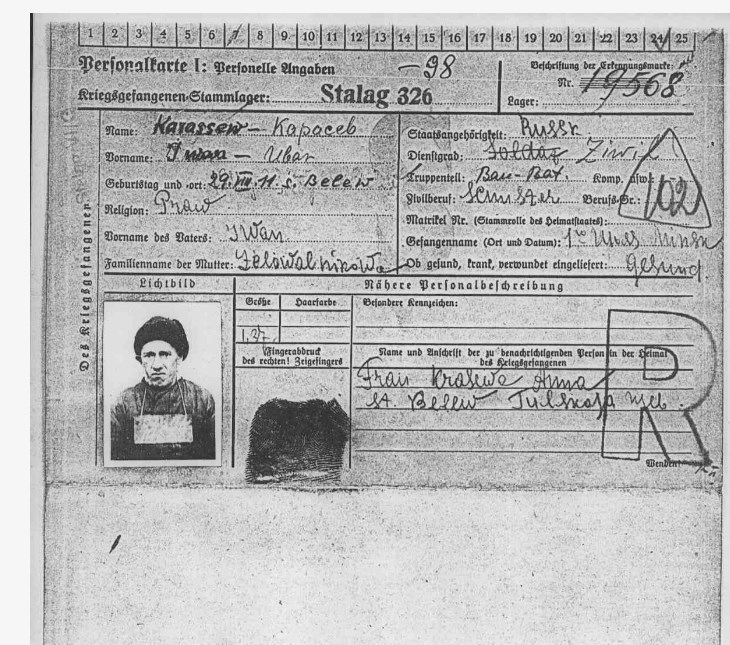 1 2 3 4 5 6 7 8 9 10 11 12 13 14 15 16 17 18 19 20 21 22 23 24 25
Personalkarte I: Personelle Angaben
-98
Beschriftung der Erkennungsmarke:
Nr. 19568
Kriegsgefangenen-Stammlager: Stalag 326
Lager:
Des Kriegsgefangenen
Name: Karassew - Карасев
Vorname: Iwan - Иван
Geburtstag und -ort: 29. VIII. 11. s. Belew
Religion: Praw
Vorname des Vaters: Iwan
Familienname der Mutter:
Staatsangehörigkeit: Russe
Dienstgrad: Soldat Zivil
Truppenteil: Bau-Bat. Komp. usw.:
Zivilberuf: Berufs-Gr.:
102
Matrikel Nr. (Stammrolle des Heimatstaates):
Gefangenname (Ort und Datum):
Ob gesund, krank, verwundet eingeliefert: Gesund
Lichtbild
Nähere Personalbeschreibung
Größe Haarfarbe
Besondere Kennzeichen:
Fingerabdruck
des rechten! Zeigefingers
Name und Anschrift der zu benachrichtigenden Person in der Heimat
des Kriegsgefangenen
Frau Anna
st. Belew Tulskaja
R
Wenden!